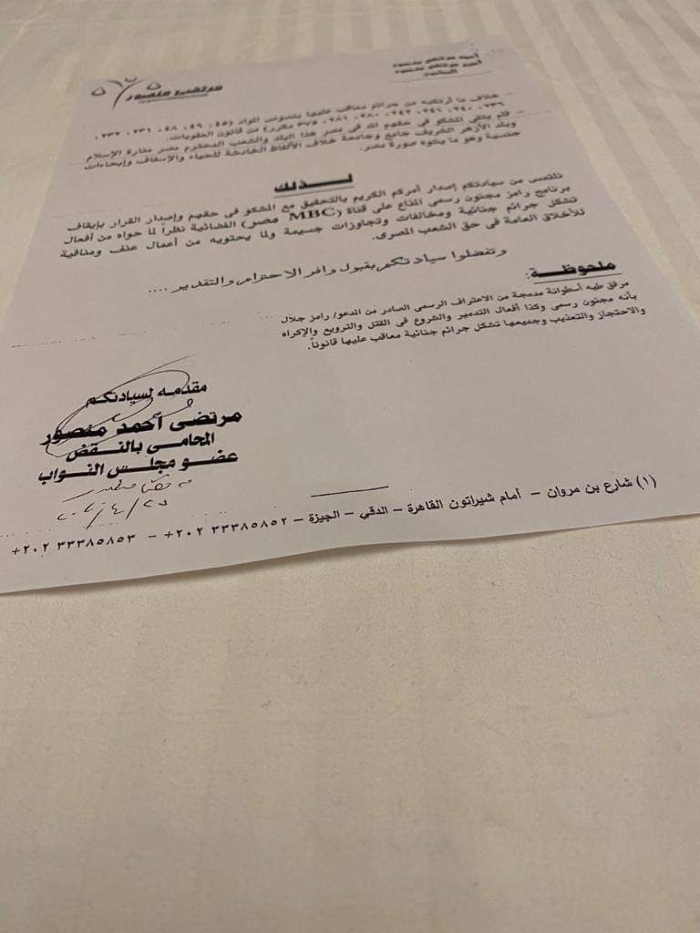 مرتضى منصور
أحمد مرتضى منصور
أمير مرتضى منصور
المحامون
- خلاف ما ارتكبه من جرائم معاقب عليها بنصوص المواد (٤٥، ٤٦، ٤٨، ٢٣١، ٢٣٢،
٢٣٦، ٢٤٠، ٢٤١، ٢٤٢، ٢٨٠، ٢٨١، ٣٧٥ مكرر) من قانون العقوبات.
- فلم يتقى المشكو فى حقهم الله فى مصر هذا البلد والشعب المحترم مصر منارة الإسلام
وبلد الأزهر الشريف جامع وجامعة خلاف الألفاظ الخادشة للحياء والإسفاف وإيحاءات
جنسية وهو ما يشوه صورة مصر.
لـــذلك
نلتمس من سيادتكم إصدار أمركم الكريم بالتحقيق مع المشكو فى حقهم وإصدار القرار بإيقاف
برنامج رامز مجنون رسمى المذاع على قناة (MBC مصر) الفضائية نظراً لما حواه من أفعال
تشكل جرائم جنائية ومخالفات وتجاوزات جسيمة ولما يحتويه من أعمال عنف ومنافية
للأخلاق العامة فى حق الشعب المصرى.
وتفضلوا سيادتكم بقبول وافر الاحترام والتقدير ....
ملحوظــة:
مرفق طيه أسطوانة مدمجة من الاعتراف الرسمى الصادر من المدعو/ رامز جلال
بأنه مجنون رسمى وكذا أفعال التدمير والشروع فى القتل والترويع والإكراه
والاحتجاز والتعذيب وجميعها تشكل جرائم جنائية معاقب عليها قانوناً.
مقدمه لسيادتكم
مرتضى أحمد منصور
المحامى بالنقض
عضو مجلس النواب
٢٠٢٠/٤/٢٥
(١) شارع بن مروان – أمام شيراتون القاهرة – الدقي – الجيزة – ٣٣٣٨٥٨٥٢ ٢٠٢+ – ٣٣٣٨٥٨٥٣ ٢٠٢+